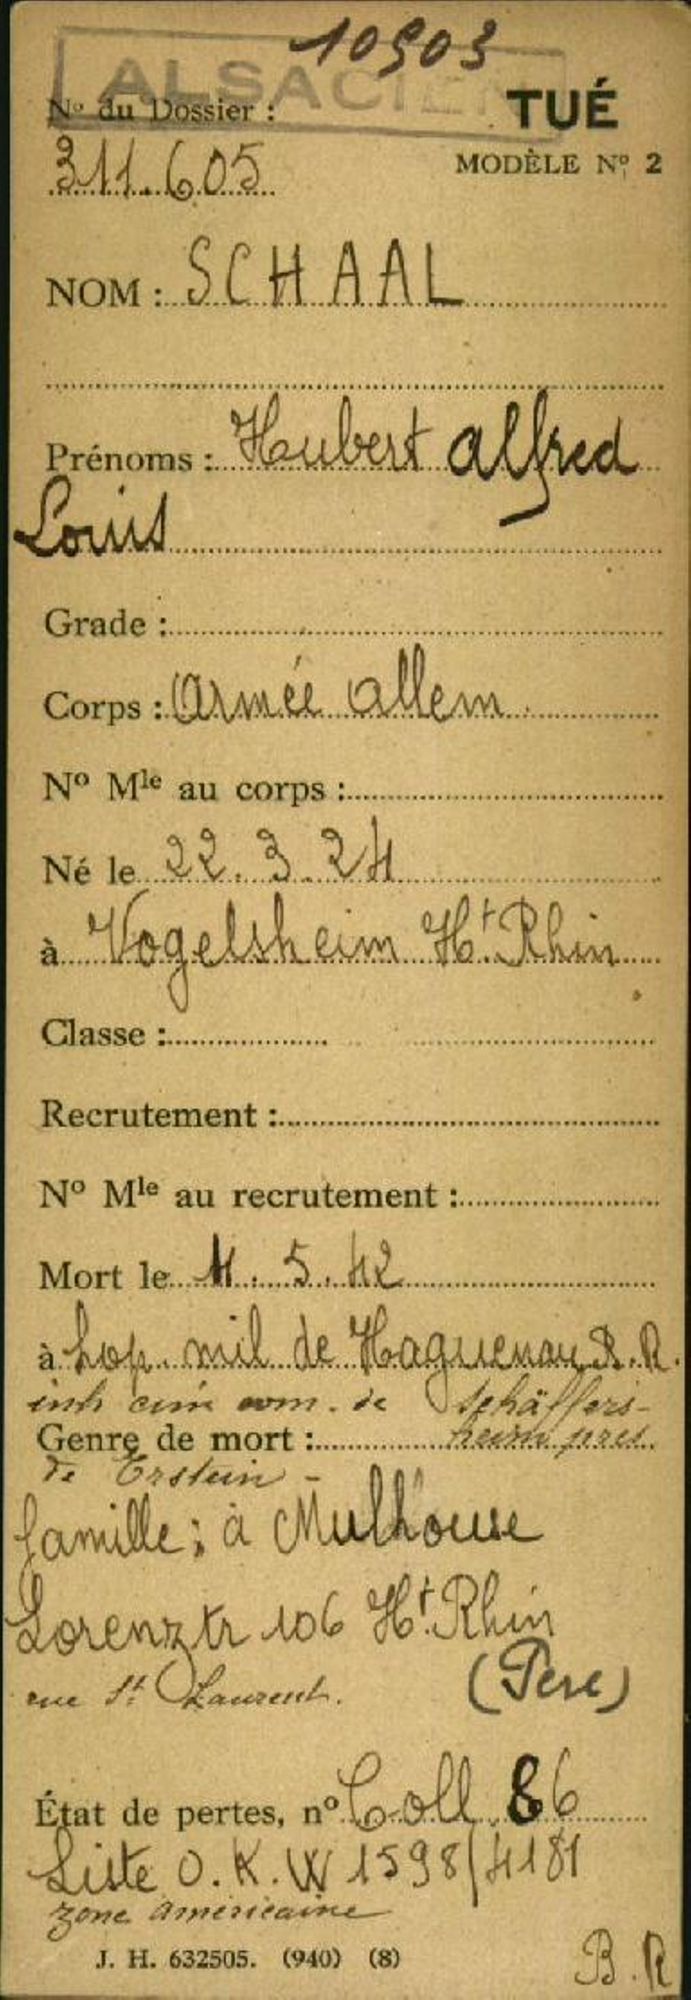 10903
ALSACIEN
Nº du Dossier :
TUÉ
311.605
MODÈLE Nº 2
NOM : SCHAAL
Prénoms : Hubert Alfred
Louis
Grade :
Corps : Armée allem
Nº Mle au corps :
Né le 22.3.24
à Vogelsheim Ht. Rhin
Classe :
Recrutement :
Nº Mle au recrutement :
Mort le 4.5.42
à hop. mil de Haguenau B.R.
inh cim com. de Schäffers-
Genre de mort : heim près
de Erstein -
famille : à Mulhouse
Lorenztr 106 Ht. Rhin
rue St Laurent. (Père)
État de pertes, nº Coll 86
Liste O.K.W 1598/4181
zone américaine
J. H. 632505. (940) (8)
B.R